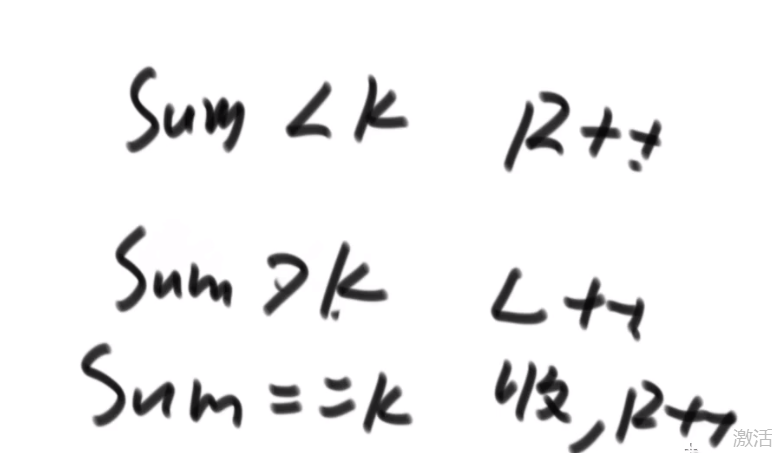 Sum < K R++
Sum > K L++
Sum == K 收, R++
激活